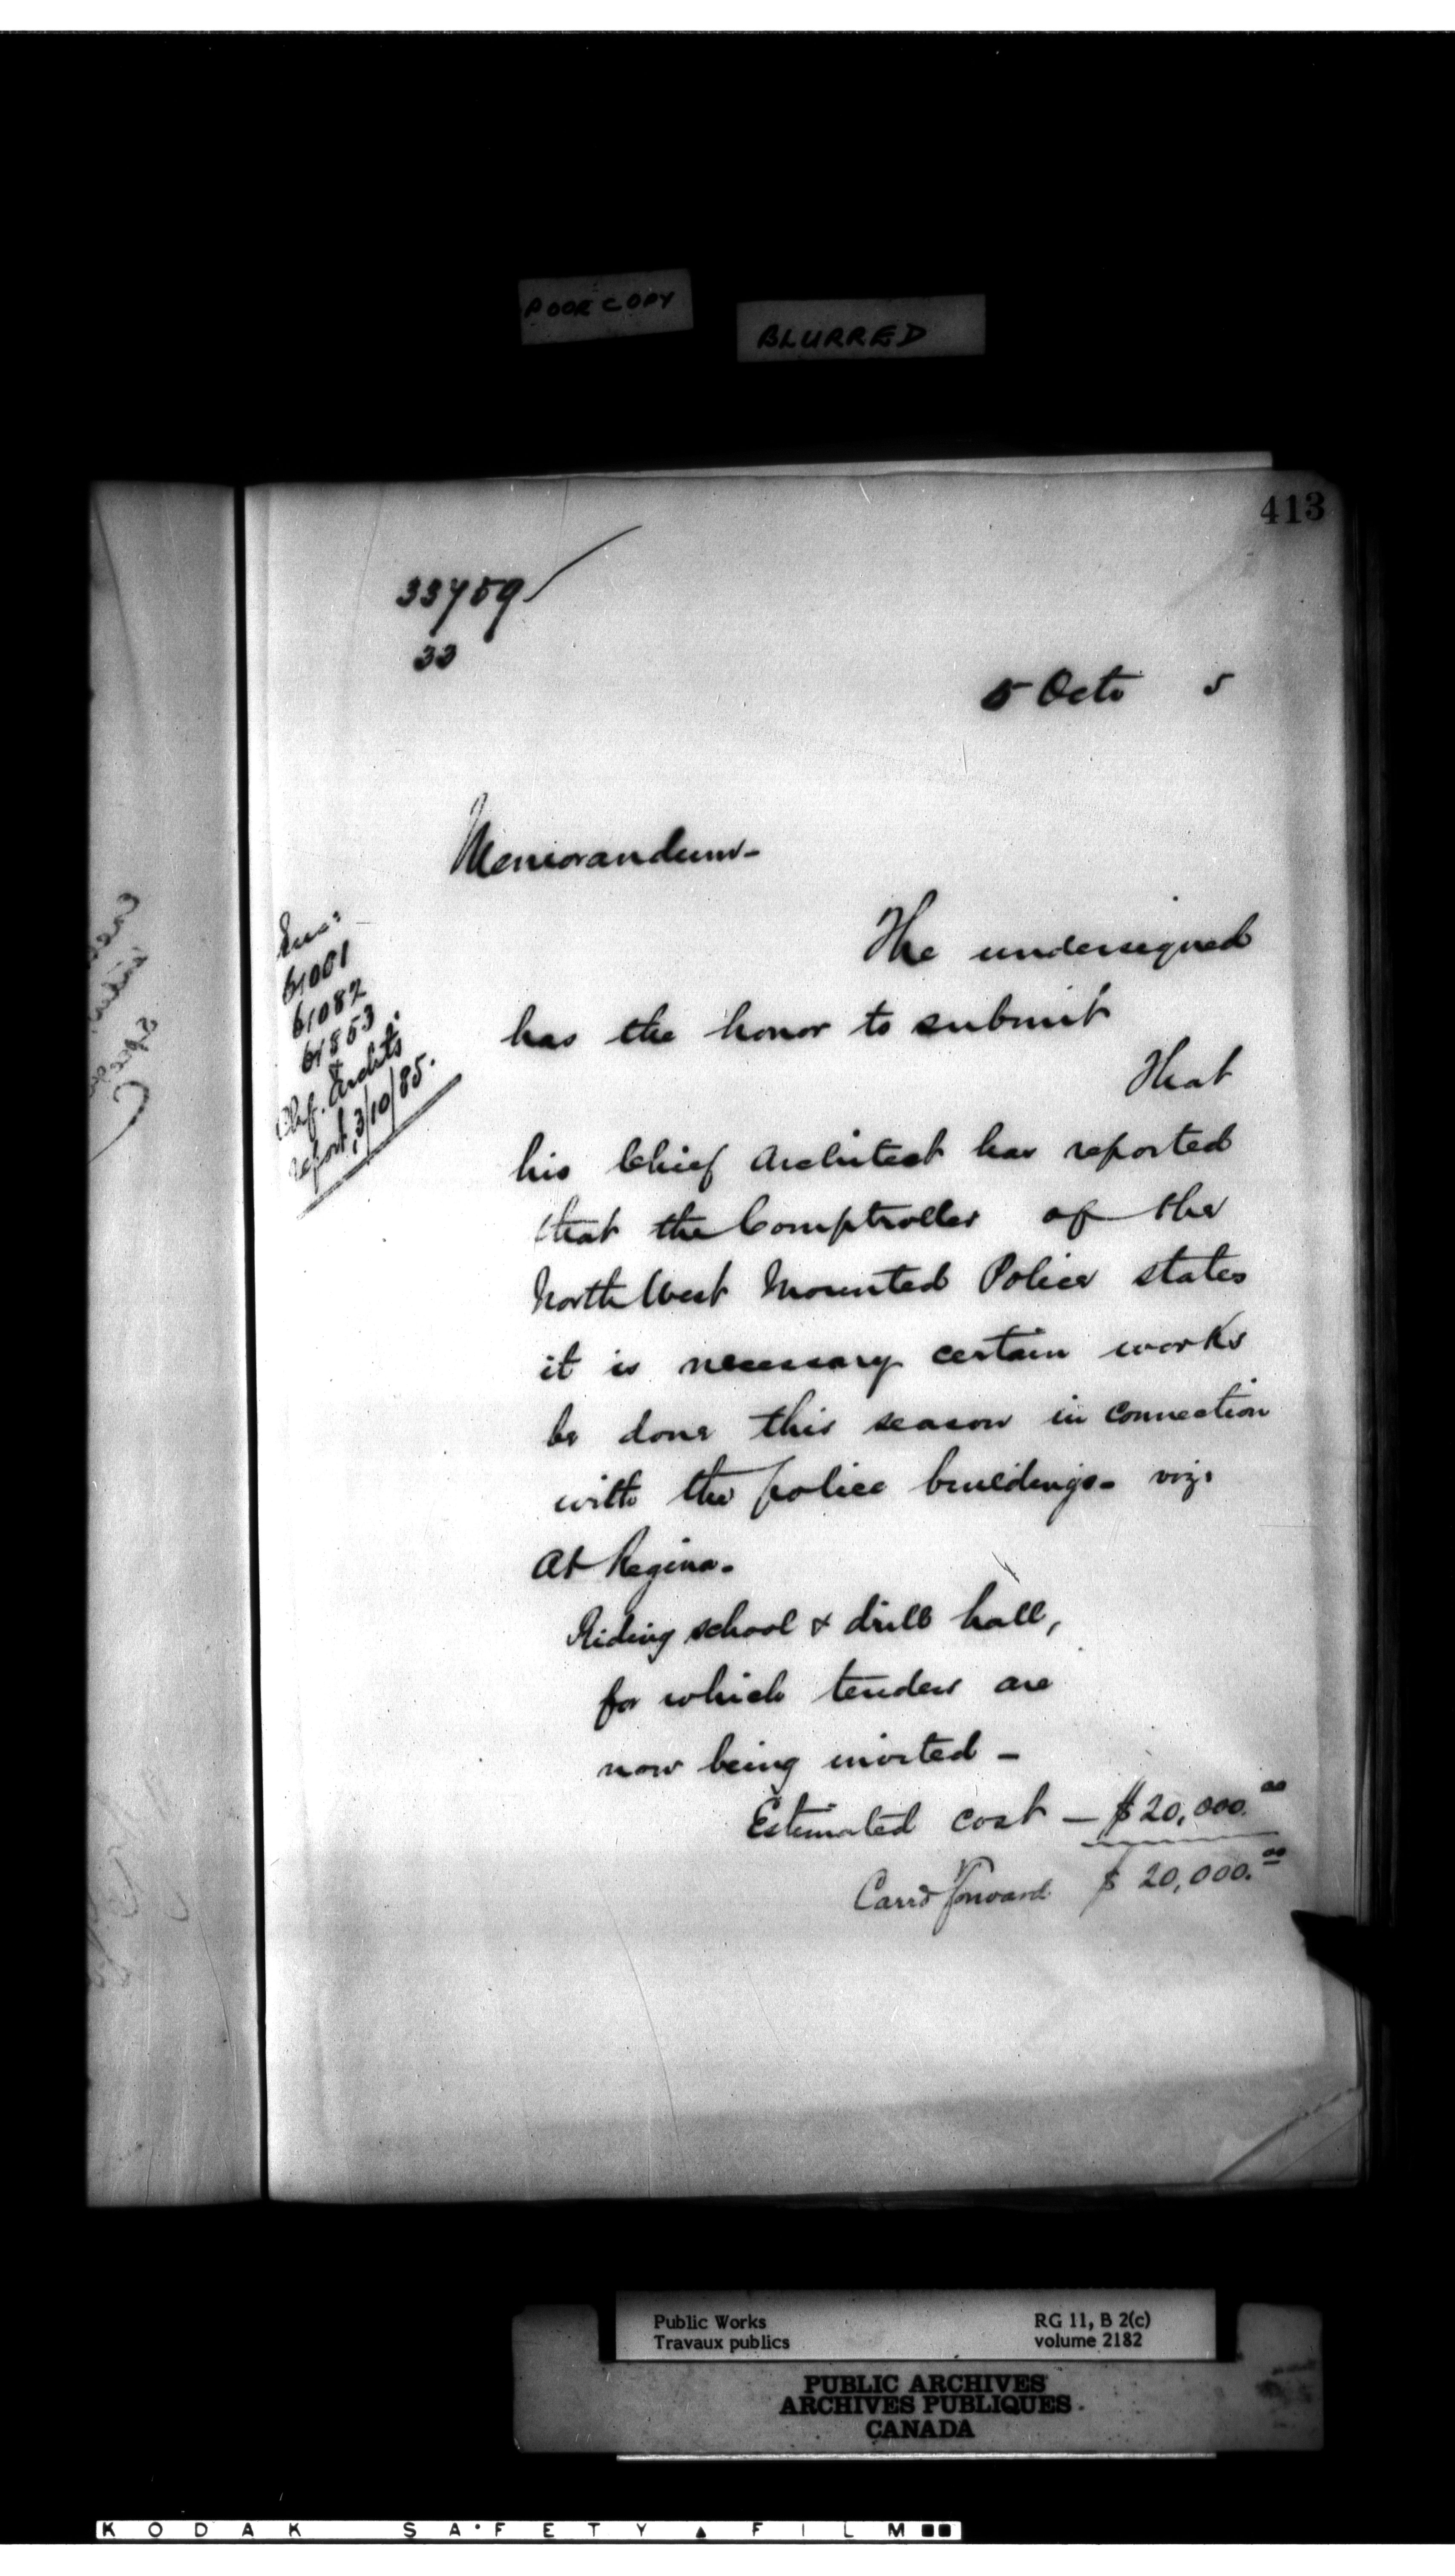 POOR COPY
BLURRED
413
33759
33
5 Octo 5
Memorandum-
Enc:
61001
61082
61853
&
Chf. Archts.
report, 3/10/85.
The undersigned
has the honor to submit
That
his Chief Architect has reported
that the Comptroller of the
North West Mounted Police states
it is necessary certain works
be done this season in connection
with the police buildings- viz.
At Regina-
Riding school & drill hall,
for which tenders are
now being invited -
Estimated cost - $20,000.00
Carrd forward $20,000.00
Public Works
Travaux publics
RG 11, B 2(c)
volume 2182
PUBLIC ARCHIVES
ARCHIVES PUBLIQUES
CANADA
KODAK SAFETY FILM